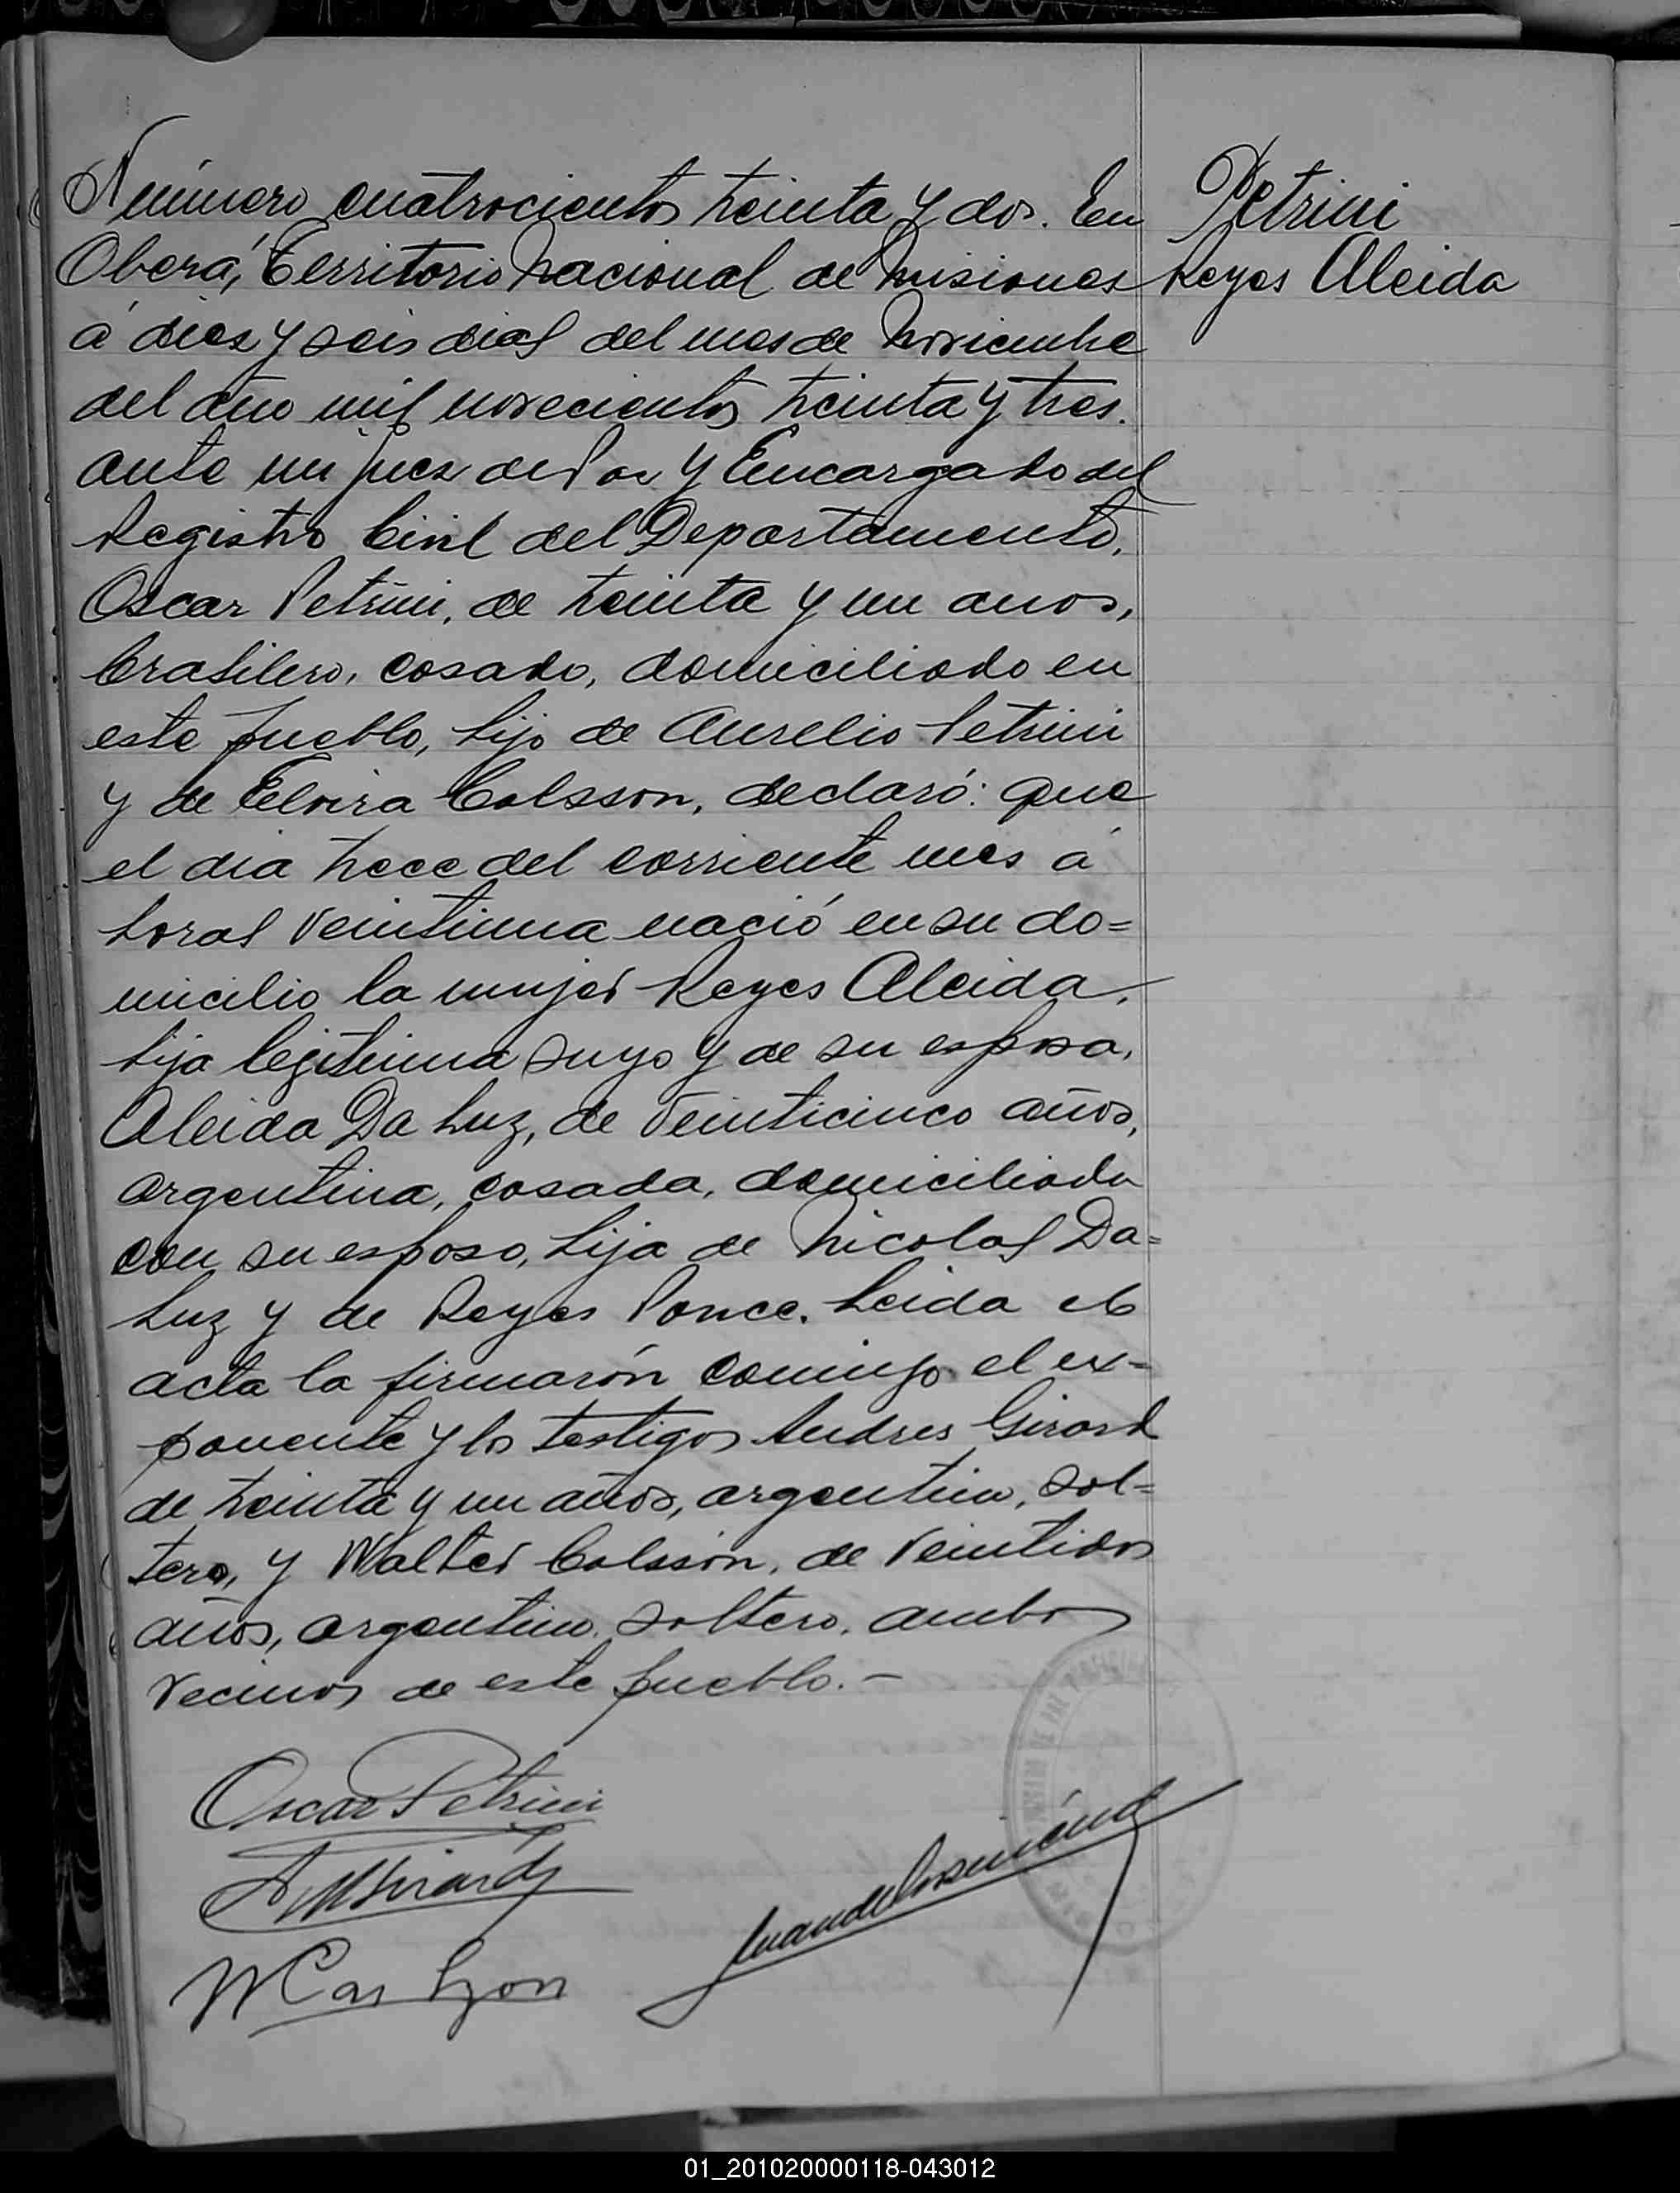 Número cuatrocientos treinta y dos. En
Oberá, Territorio Nacional de Misiones
á diez y seis dias del mes de Noviembre
del año mil novecientos treinta y tres.
ante mi Juez de Paz y Encargado del
Registro Civil del Departamento,
Oscar Petrini, de treinta y un anos,
brasilero, casado, domiciliado en
este pueblo, hijo de Aurelio Petrini
y de Elvira Colsson, declaró: que
el dia trece del corriente mes á
horas veintiuna nació en su do=
micilio la mujer Reyes Aleida,
hija legitima suya y de su esposa,
Aleida Da Luz, de veinticinco años,
argentina, casada, domiciliada
con su esposo, hija de Nicolas Da=
Luz y de Reyes Ponce. Leida el
acta la firmarón conmigo el ex-
ponente y los testigos Andres Girard
de treinta y un años, argentino, sol=
tero, y Walter Colsson, de veintidos
años, argentino, soltero, ambos
vecinos de este pueblo.-
Petrini
Reyes Aleida
Oscar Petrini
Girard
W Carlzon
01_201020000118-043012